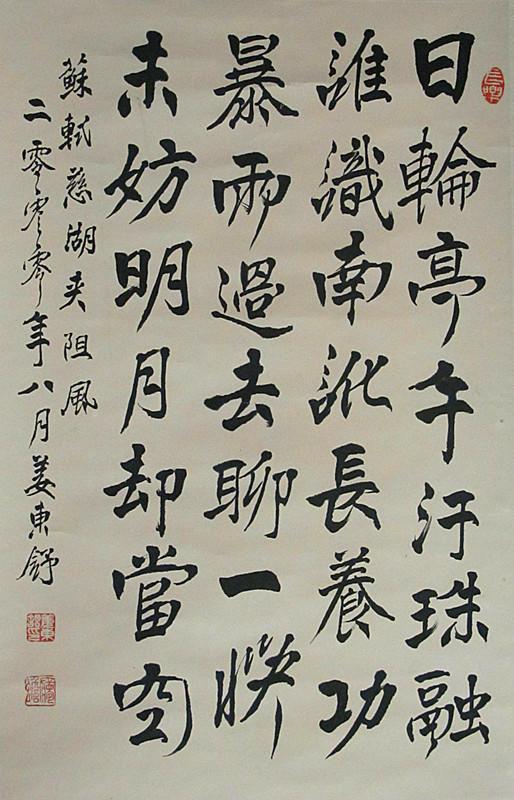 日輪亭午汗珠融
誰識南訛長養功
暴雨過去聊一快
未妨明月却當空
蘇軾慈湖夾阻風
二零零零年八月姜東舒